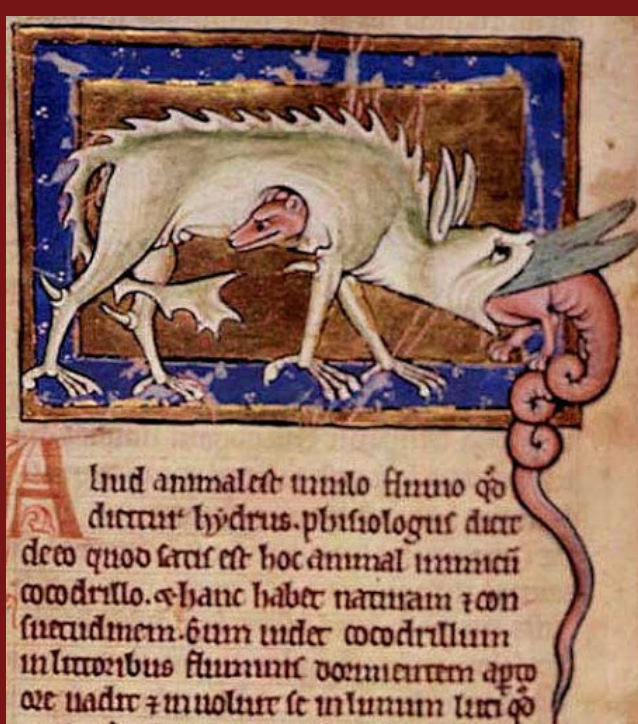 Aliud animal est in nilo fluuio qd
dicitur hydrus. phisiologus dicit
de eo quod satis est hoc animal inimicu
cocodrillo. & hanc habet naturam 7 con
suetudinem. Cum uidet cocodrillum
in littoribus fluminis dormientem apto
ore uadit 7 inuoluit se in limum luti qo